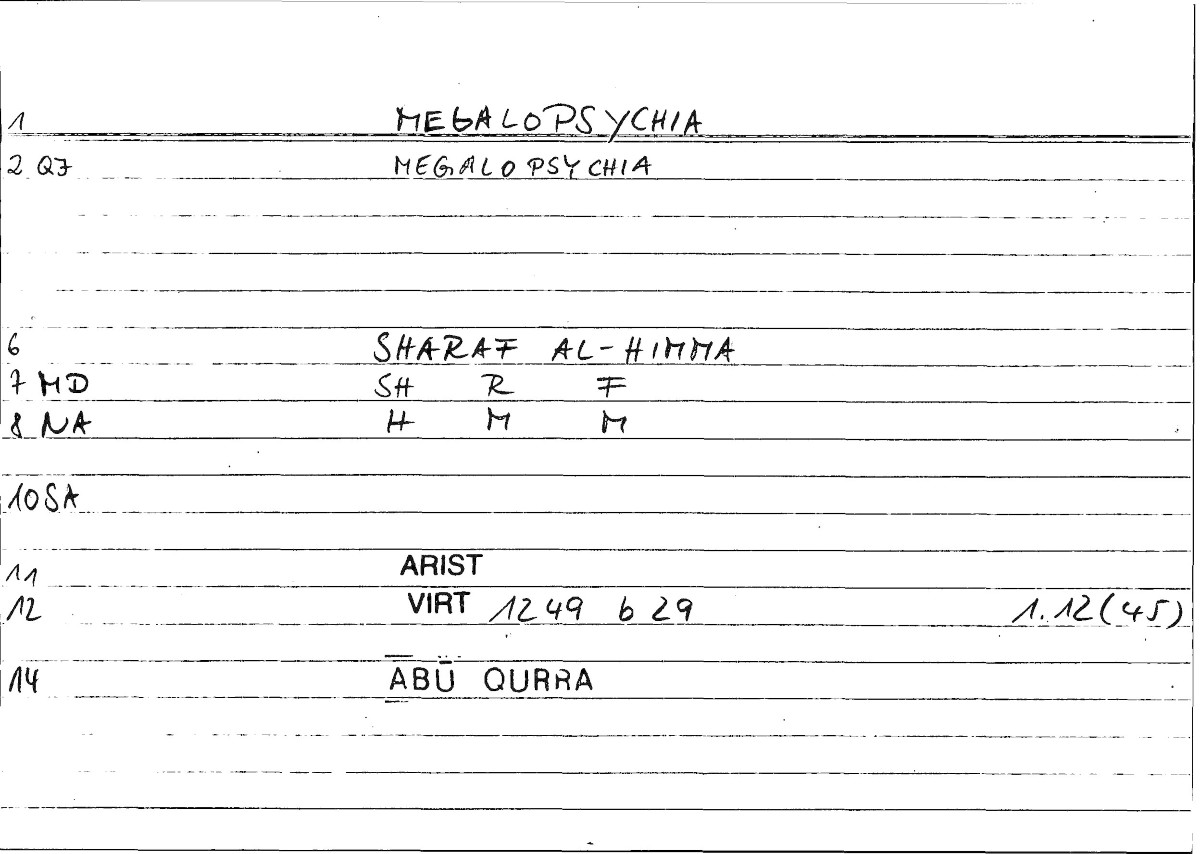 1 MEGALOPSYCHIA
2 QF MEGALOPSYCHIA
6 SHARAF AL-HIMMA
7 MD SH R F
8 NA H M M
10 SA
11 ARIST
12 VIRT 1249 b 29 1.12(45)
14 ABŪ QURRA